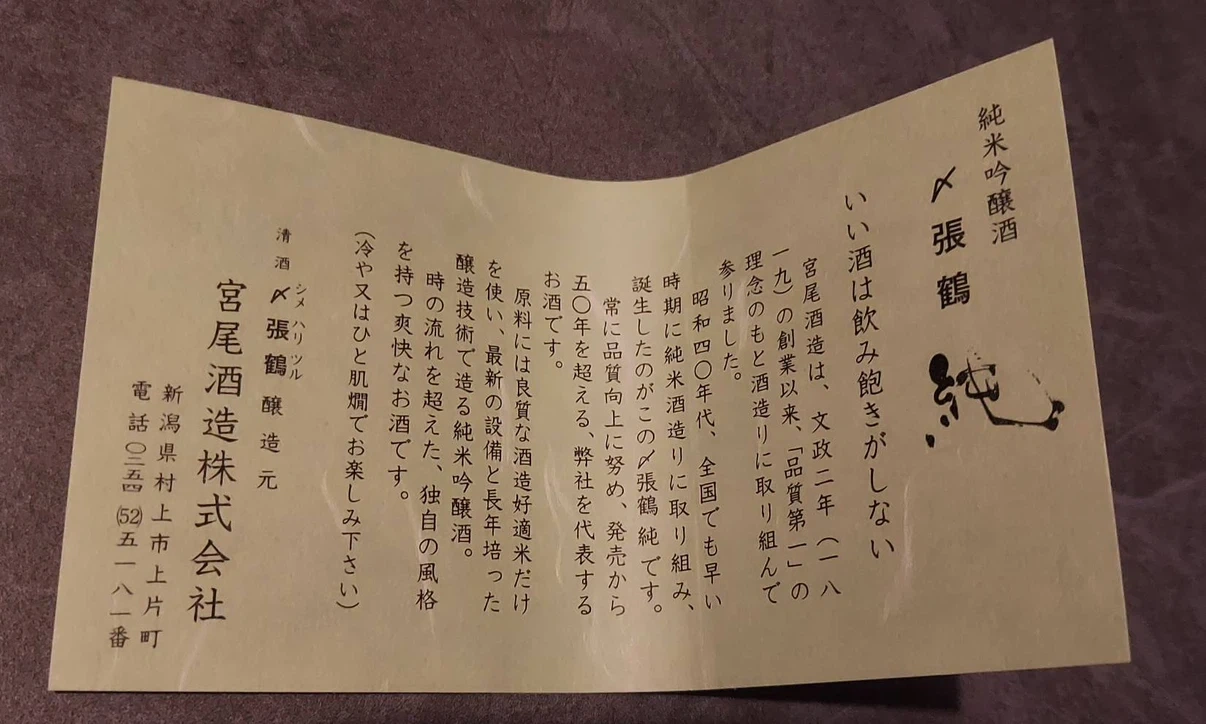 純米吟醸酒
〆張鶴 純
いい酒は飲み飽きがしない
宮尾酒造は、文政二年（一八
一九）の創業以来、「品質第一」の
理念のもと酒造りに取り組んで
参りました。
昭和四〇年代、全国でも早い
時期に純米酒造りに取り組み、
誕生したのがこの〆張鶴 純です。
常に品質向上に努め、発売から
五〇年を超える、弊社を代表する
お酒です。
原料には良質な酒造好適米だけ
を使い、最新の設備と長年培った
醸造技術で造る純米吟醸酒。
時の流れを超えた、独自の風格
を持つ爽快なお酒です。
（冷や又はひと肌燗でお楽しみ下さい）
シメ ハリ ツル
清酒 〆張鶴 醸造元
宮尾酒造株式会社
新潟県村上市上片町
電話〇二五四(52)五一八一番